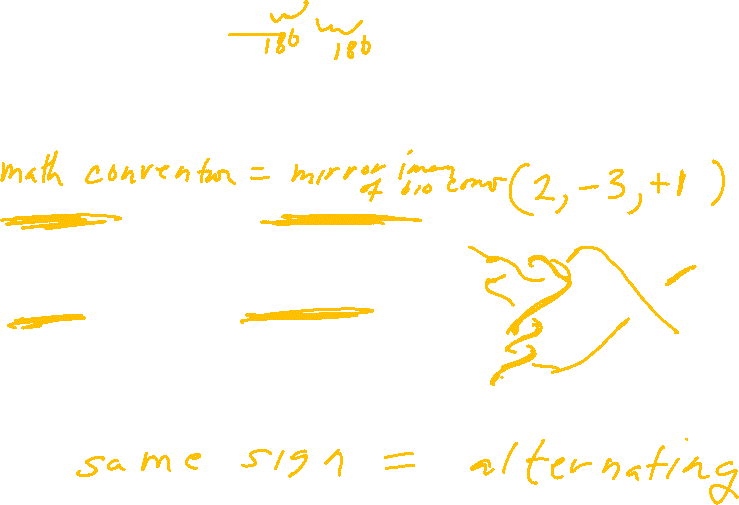 180 180
math convention = mirror image of bio conv (2, -3, +1)
same sign = alternating